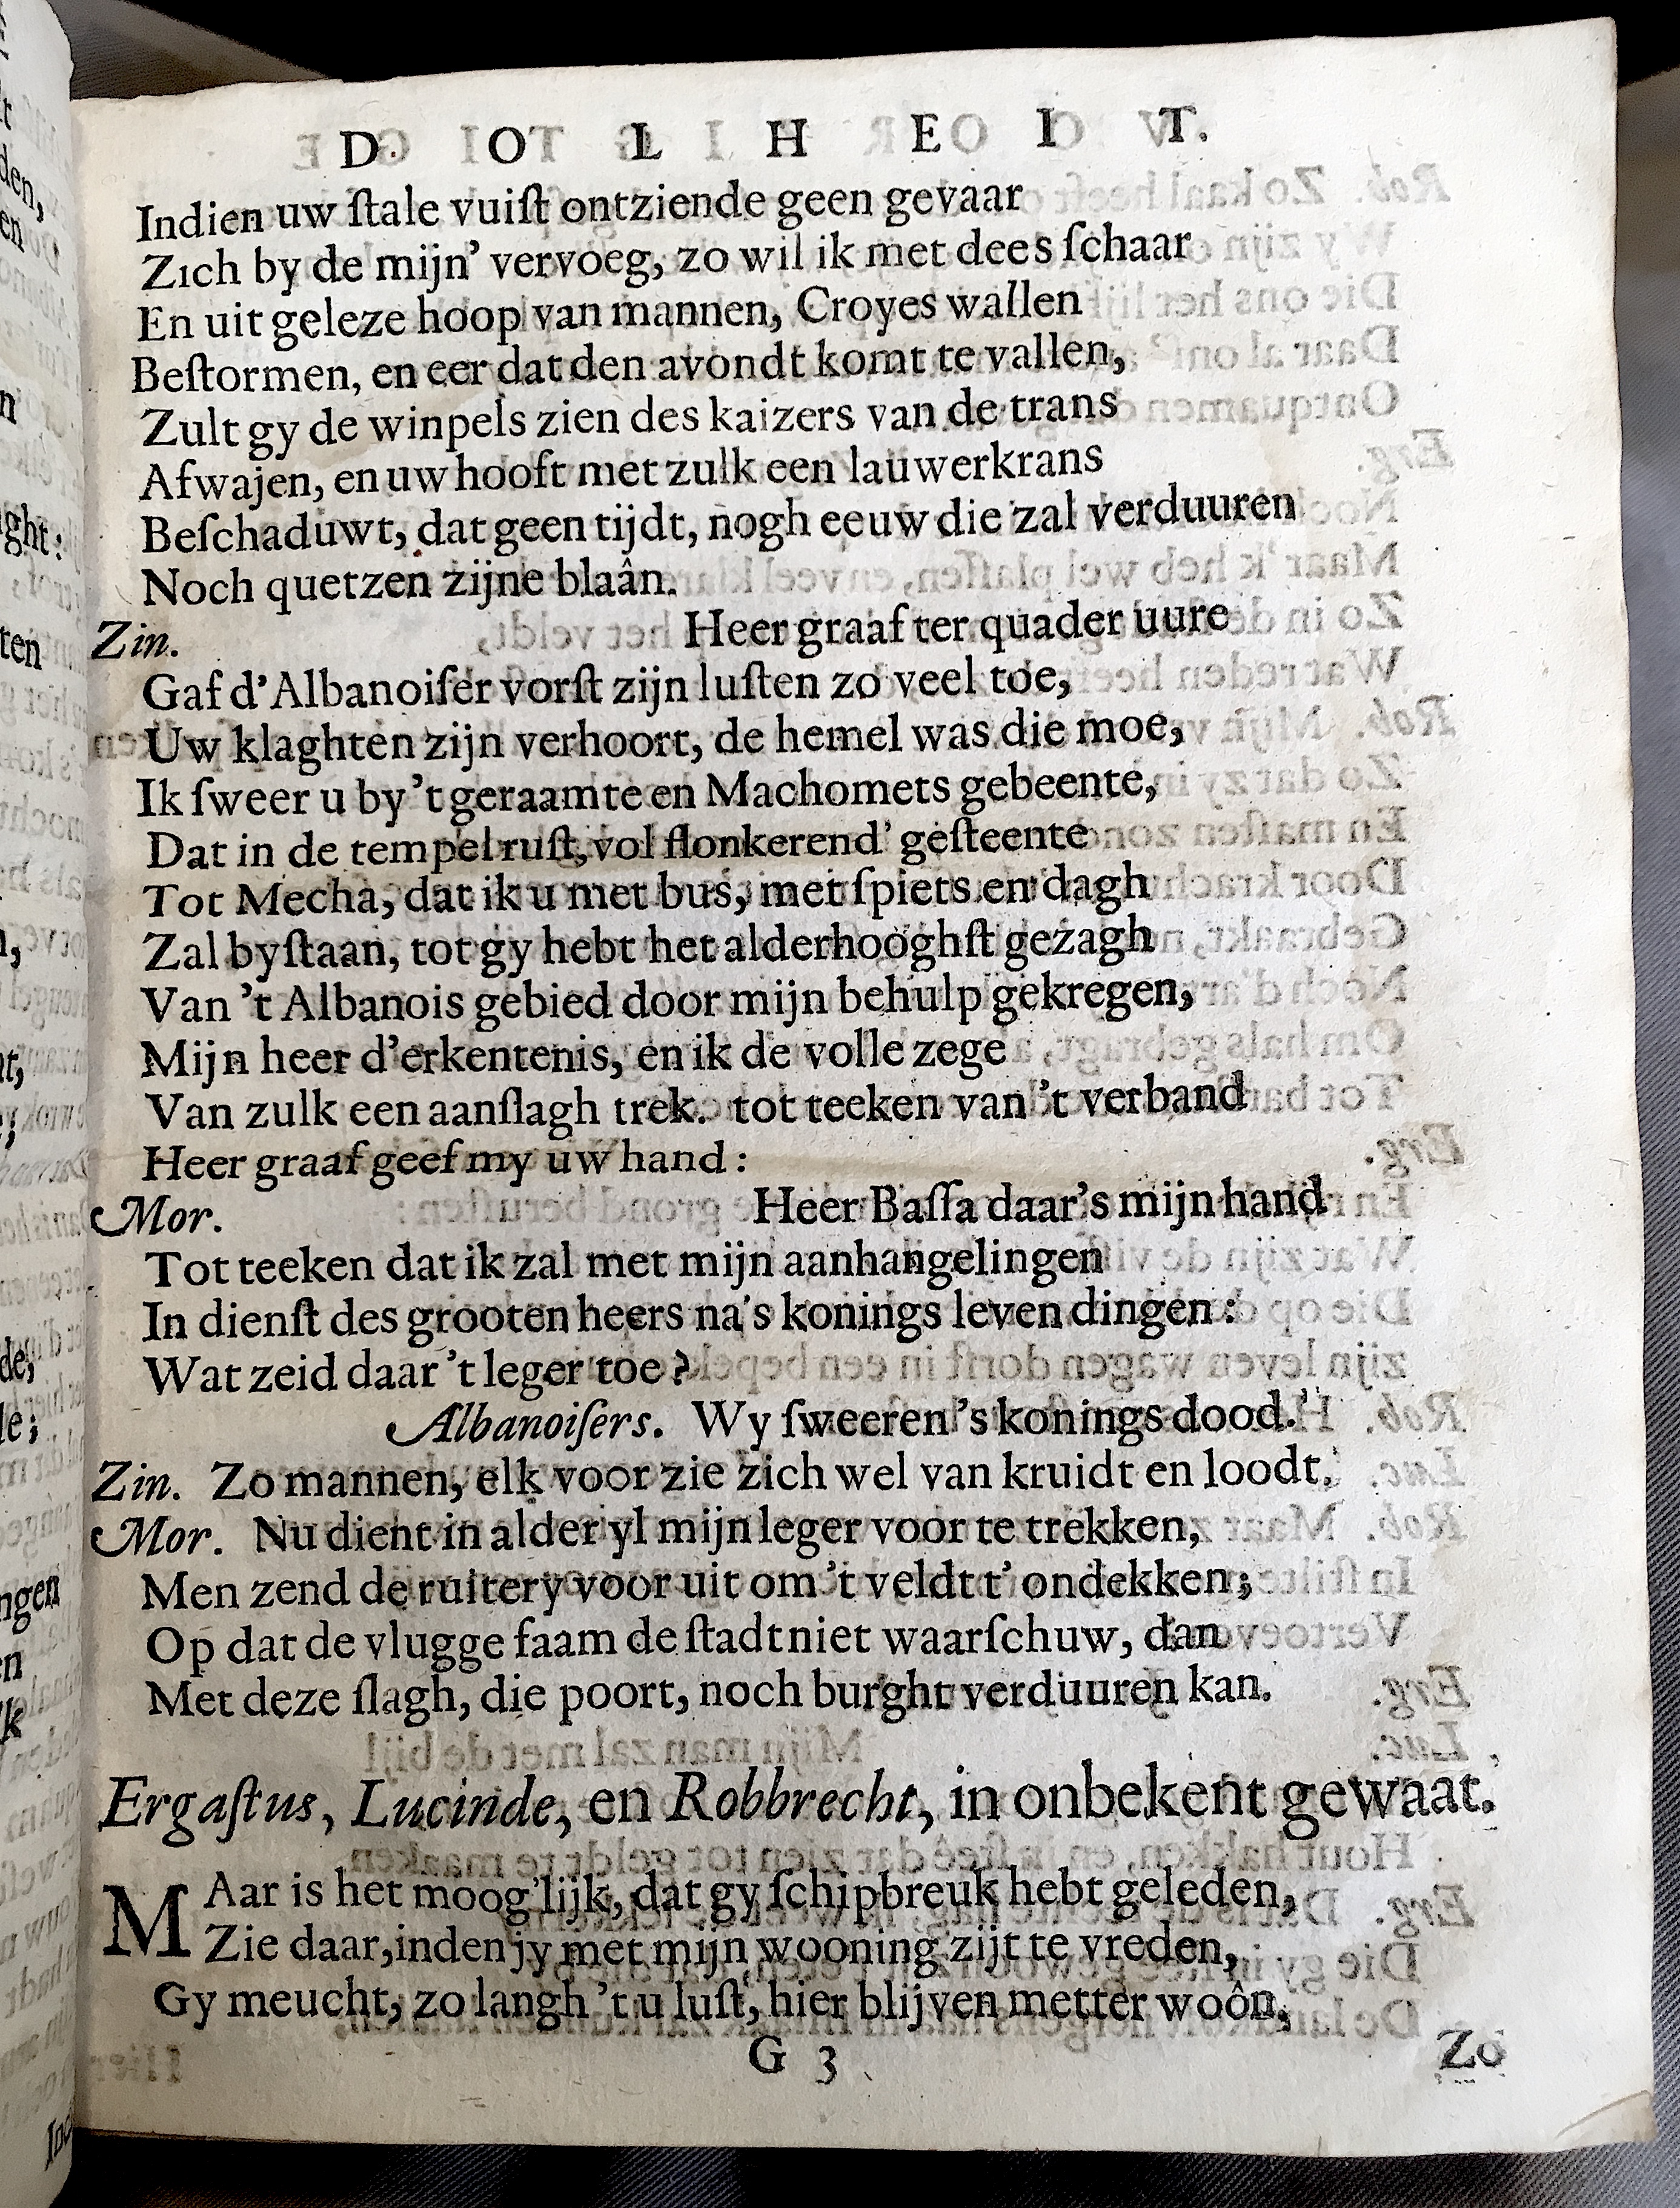 D O L H E I T.
Indien uw ſtale vuiſt ontziende geen gevaar
Zich by de mijn’ vervoeg, zo wil ik met dees ſchaar
En uit geleze hoop van mannen, Croyes wallen
Beſtormen, en eer dat den avondt komt te vallen,
Zult gy de winpels zien des kaizers van de trans
Afwajen, en uw hooft met zulk een lauwerkrans
Beſchaduwt, dat geen tijdt, nogh eeuw die zal verduuren
Noch quetzen zijne blaân.
Zin. Heer graaf ter quader uure
Gaf d’Albanoiſer vorſt zijn luſten zo veel toe,
Uw klaghten zijn verhoort, de hemel was die moe,
Ik ſweer u by ’t geraamte en Machomets gebeente,
Dat in de tempel ruſt, vol flonkerend’ geſteente
Tot Mecha, dat ik u met bus, met ſpiets en dagh
Zal byſtaan, tot gy hebt het alderhooghſt gezagh
Van ’t Albanois gebied door mijn behulp gekregen,
Mijn heer d’erkentenis, en ik de volle zege
Van zulk een aanſlagh trek. tot teeken van ’t verband
Heer graaf geef my uw hand:
Mor. Heer Baſſa daar’s mijn hand
Tot teeken dat ik zal met mijn aanhangelingen
In dienſt des grooten heers na’s konings leven dingen:
Wat zeid daar ’t leger toe?
Albanoiſers. Wy ſweeren ’s konings dood.
Zin. Zo mannen, elk voor zie zich wel van kruidt en loodt.
Mor. Nu dient in alder yl mijn leger voor te trekken,
Men zend de ruitery voor uit om ’t veldt t’ ondekken;
Op dat de vlugge faam de ſtadt niet waarſchuw, dan
Met deze ſlagh, die poort, noch burght verduuren kan.
Ergaſtus, Lucinde, en Robbrecht, in onbekent gewaat.
MAar is het moog’lijk, dat gy ſchipbreuk hebt geleden,
Zie daar, inden jy met mijn wooning zijt te vreden,
Gy meucht, zo langh ’t u luſt, hier blijven metter woôn,
G 3
Zo